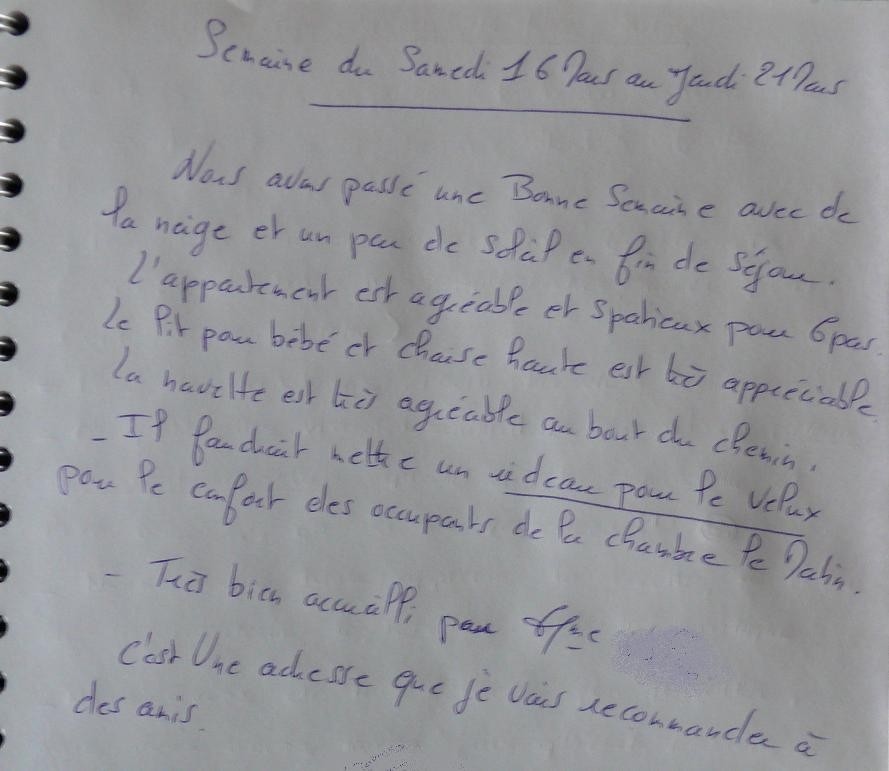 Semaine du Samedi 16 Mars au Jeudi 21 Mars
Nous avons passé une Bonne Semaine avec de
la neige et un peu de soleil en fin de séjour.
l'appartement est agréable et spatieux pour 6 pers.
le lit pour bébé et chaise haute est très appréciable
la navette est très agréable au bout du chemin.
- Il faudrait mettre un rideau pour le velux
pour le confort des occupants de la chambre le Matin.
- Très bien accueilli par Mme
C'est Une adresse que je vais recommander à
des amis.